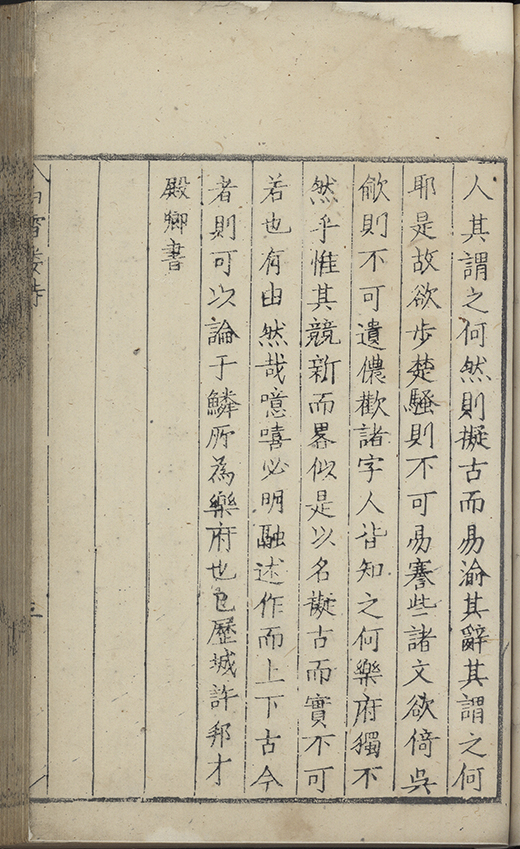 人其謂之何然則擬古而易渝其辭其謂之何
耶是故欲步楚騷則不可易謇些諸文欲倚吳
歈則不可遺儂歡諸字人皆知之何樂府獨不
然乎惟其競新而畧似是以名擬古而實不可
若也有由然哉噫嘻必明融述作而上下古今
者則可以論于鱗所為樂府也已歷城許邦才
殿卿書
白雪樓詩
三